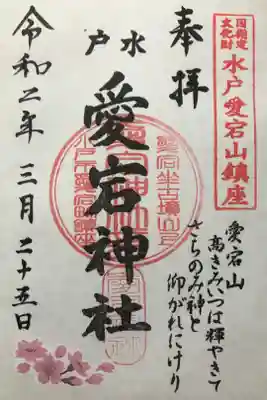 国指定
文化財
水戸愛宕山鎮座
奉拝
水戸
愛宕神社
令和二年三月二十五日
愛宕山
高きみいつは輝やきて
さちのみ神と
仰がれにけり